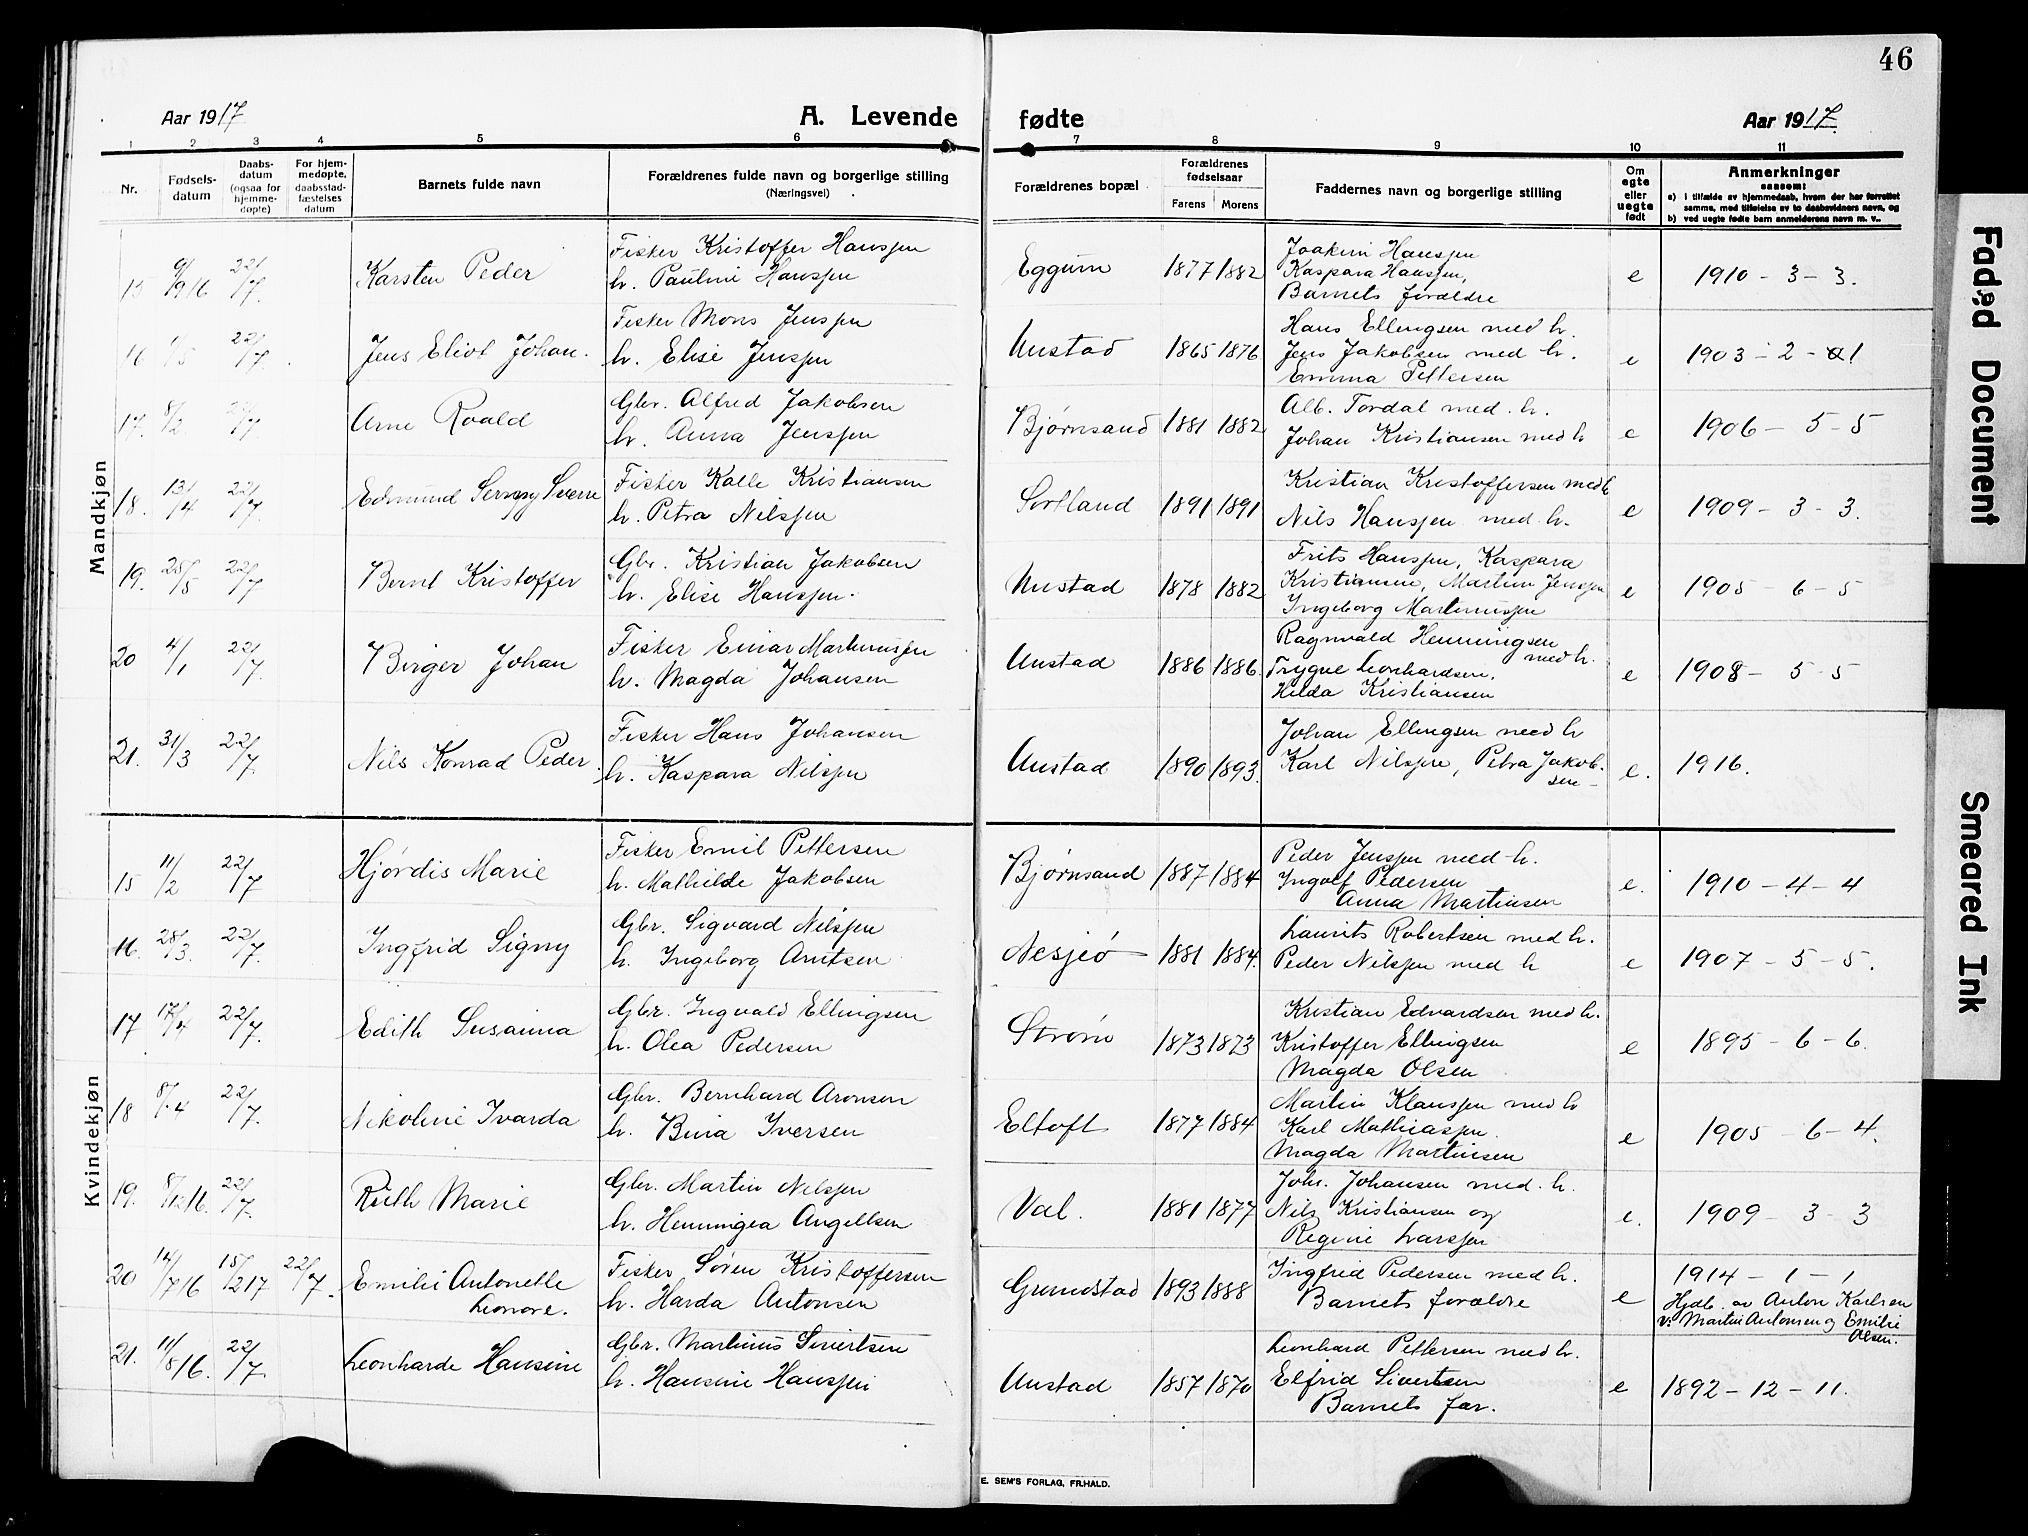 46
Aar 1917
A. Levende fødte
Aar 1917.
1 2 3 4 5 6 7 8 9 10 11
Nr.
Fødsels-
datum
Daabs-
datum
(ogsaa for
hjemme-
døpte)
For hjem-
medøpte,
daabsstad-
fæstelses
datum
Barnets fulde navn
Forældrenes fulde navn og borgerlige stilling
(Næringsvei)
Forældrenes bopæl
Forældrenes
fødselsaar
Farens
Morens
Faddernes navn og borgerlige stilling
Om
egte
eller
uegte
født
Anmerkninger
saasom:
a) i tilfælde av hjemmedaab, hvem der har forrettet
samme, med tilføielse av to daabsvidners navn, og
b) ved uegte fødte barn anmelderens navn m. v..
Mandkjøn
15 6/9 16 22/7. Karsten Peder
Fisker Kristoffer Hanssen
h. Pauline Hanssen
Eggum 1877 1882
Joakim Hanssen
Kaspara Hanssen,
Barnets forældre
e 1910 - 3 - 3.
16 1/5 22/7. Jens Eliot Johan.
Fisker Mons Jenssen
h. Elise Jenssen
Unstad 1865 1876
Hans Ellingsen med h.
Jens Jakobsen med h.
Emma Pettersen
e 1903 - 2 - 1
17. 8/2 22/7. Arne Roald
Gbr. Alfred Jakobsen
h. Anna Jenssen
Bjørnsand 1881 1882
Alb. Tordal med h.
Johan Kristiansen med h
e 1906 - 5 - 5
18. 13/4 22/7. Edmund Sverre
Fisker Kalle Kristiansen
h. Petra Nilssen
Sortland 1891 1891
Kristian Kristoffersen med h
Nils Hanssen med h.
e 1909 - 3 - 3.
19. 25/5 22/7 Bernt Kristoffer
Gbr. Kristian Jakobsen
h. Elise Hanssen.
Unstad 1878 1882
Frits Hanssen, Kaspara
Kristiansen, Martin Jenssen
Ingeborg Martinussen
e 1905 - 6 - 5
20 4/1 22/7. Birger Johan
Fisker Einar Martinussen
h. Magda Johansen
Unstad 1886 1886.
Ragnvald Henningsen
med h.
Trygve Leonhardsen,
Hilda Kristiansen
e 1908 - 5 - 5
21. 31/3 22/7. Nils Konrad Peder.
Fisker Hans Johansen
h. Kaspara Nilssen
Unstad 1890 1893.
Johan Ellingsen med h
Karl Nilssen, Petra Jakob-
sen
e. 1916.
Kvindekjøn
15 11/2 22/7 Hjørdis Marie
Fisker Emil Pettersen
h. Mathilde Jakobsen
Bjørnsand 1887 1884
Peder Jenssen med h.
Ingolf Pedersen
Anna Martinsen
e. 1910 - 4 - 4
16. 28/3. 22/7. Ingfrid Signy
Gbr. Sigvard Nilssen
h. Ingeborg Arntsen
Nesjeø 1881 1884.
Laurits Robertsen med h.
Peder Nilssen med h
e 1907 - 5 - 5.
17 17/4 22/7. Edith Susanna
Gbr. Ingvald Ellingsen
h. Olea Pedersen
Strøm 1873 1873
Kristian Edvardsen med h.
Kristoffer Ellingsen
Magda Olsen
e 1895 - 6 - 6.
18 8/4 22/7. Nikoline Ivarda
Gbr. Bernhard Aronsen
h. Bina Iversen
Eltoft 1877 1884
Martin Klaussen med h
Karl Mathiassen.
Magda Martinsen
e 1905 - 6 - 4.
19. 8/12 16. 22/7. Ruth Marie
Gbr. Martin Nilssen
h. Henningea Angellsen
Val. 1881 1877
Joh. Johansen med h.
Nils Kristiansen og
Regine Larssen
e. 1909 - 3 - 3
20 14/7 16 15/2 17 22/7. Emilie Antonette
Leonore.
Fisker Søren Kristoffersen
h. Harda Antonsen
Grundstad 1893 1888
Ingfrid Pedersen med h.
Barnets forældre
e 1914 - 1 - 1
Hjdb. av Anton Karlsen
v: Martin Antonsen og Emilie
Olsen.
21. 11/8 16. 22/7. Leonharde Hansine
Gbr. Martinus Sivertsen
h. Hansine Hanssen
Unstad 1857 1870
Leonhard Pettersen med h.
Elfrid Sivertsen
Barnets far.
e 1892 - 12 - 11.
E. SEM'S FORLAG, FR.HALD.
Faded Document
Smeared Ink